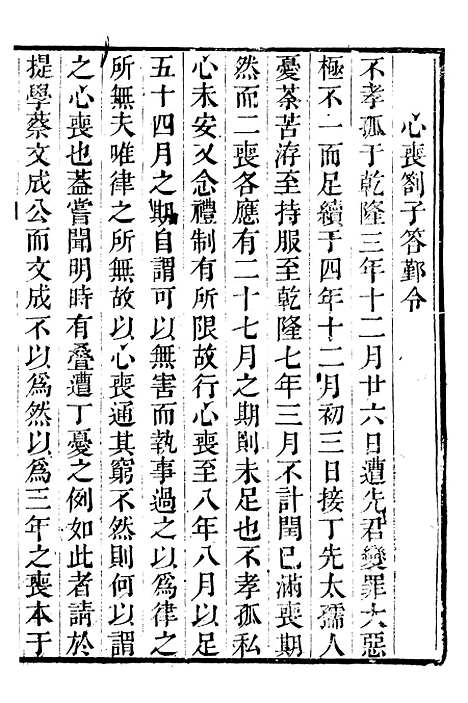 心喪劄子答鄞令
不孝孤于乾隆三年十二月廿六日遭先君變罪大惡
極不一而足續于四年十二月初三日接丁先太孺人
憂荼苦洊至持服至乾隆七年三月不計閏已滿喪期
然而二喪各應有二十七月之期則未足也不孝孤私
心未安又念禮制有所限故行心喪至八年八月以足
五十四月之期自謂可以無害而執事過之以爲律之
所無夫唯律之所無故以心喪通其窮不然則何以謂
之心喪也蓋嘗聞明時有叠遭丁憂之例如此者請於
提學蔡文成公而文成不以爲然以爲三年之喪本于